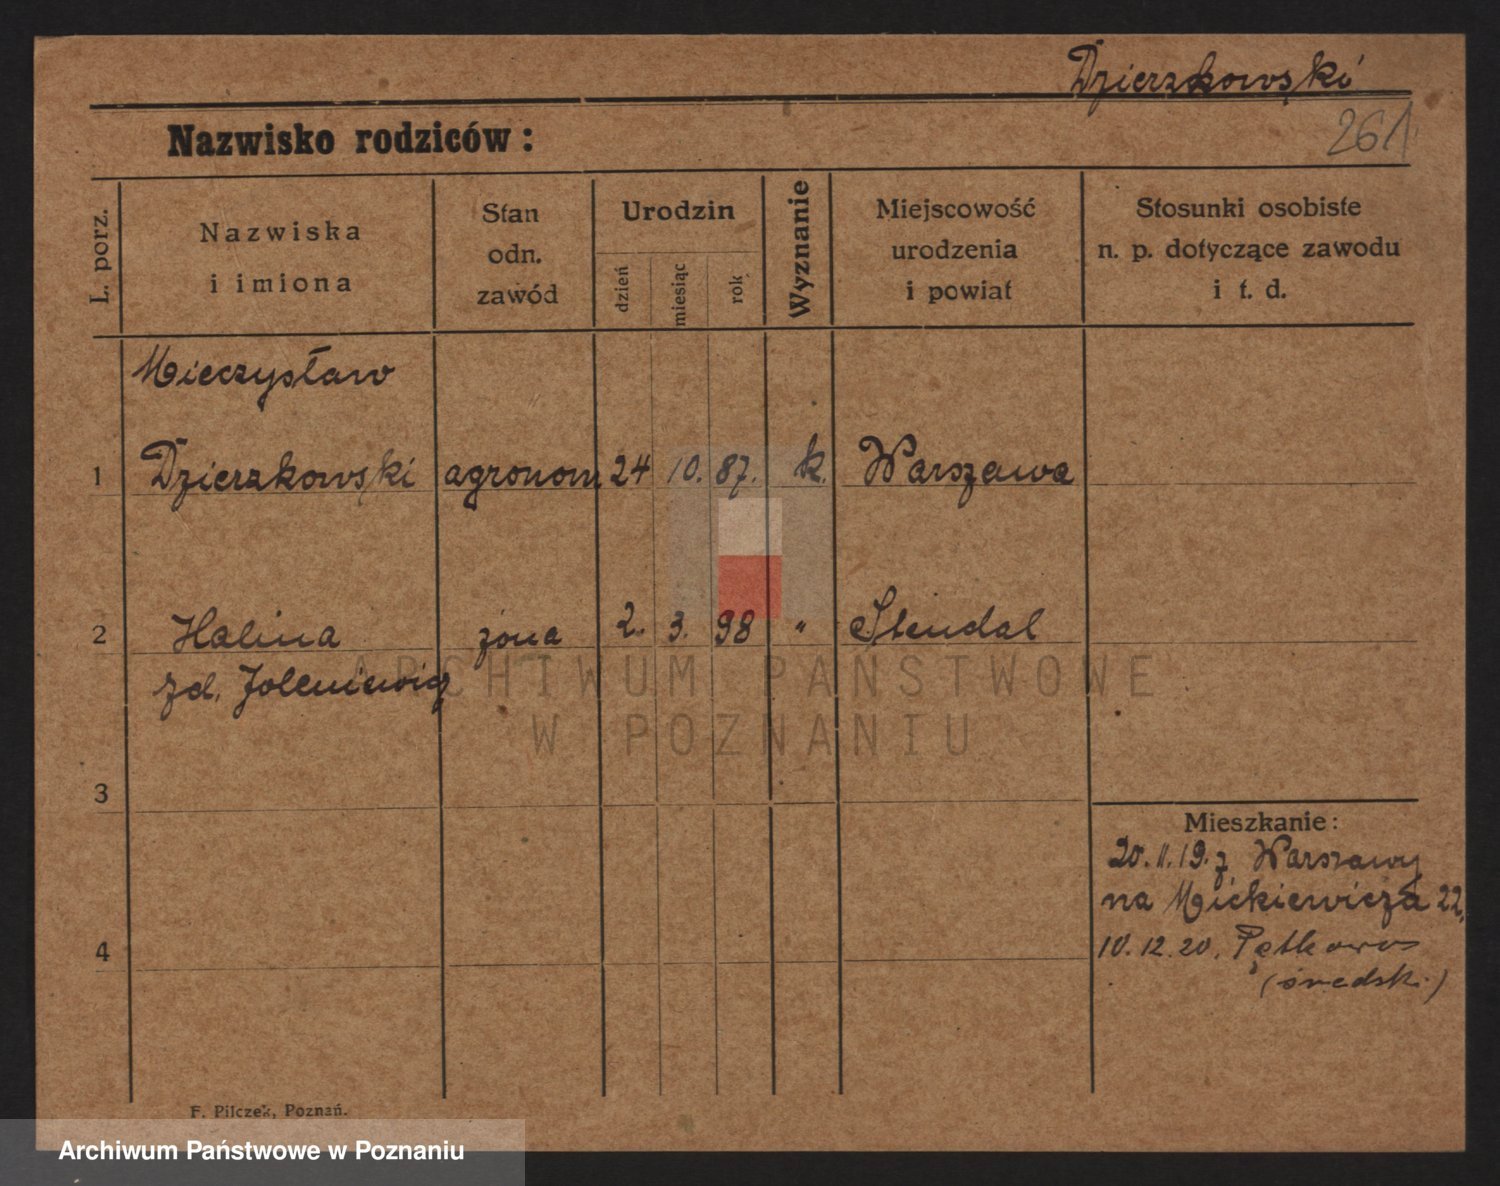 Dzierzkowski
261
Nazwisko rodziców :
L. porz.
Nazwiska
i imiona
Stan
odn.
zawód
Urodzin
dzień
miesiąc
rok
Wyznanie
Miejscowość
urodzenia
i powiat
Stosunki osobiste
n. p. dotyczące zawodu
i t. d.
Mieczysław
1 Dzierzkowski agronom 24 10. 87. k. Warszawa
2 Halina żona 2. 3. 98 " Stendal
zd.
3
Mieszkanie :
20. 11. 19. z Warszawy
na Mickiewicza 22.
4
10. 12. 20. Pętkowo
(średzk.)
F. Pilczek, Poznań.
ARCHIWUM PAŃSTWOWE
W POZNANIU
Archiwum Państwowe w Poznaniu